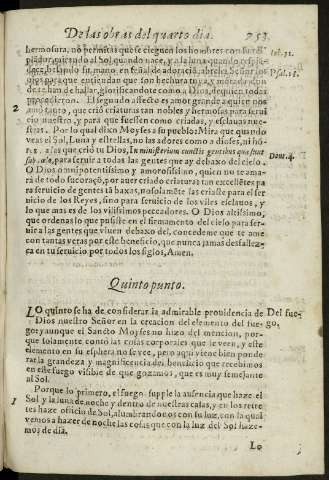 De las obras del quarto dia. 753
hermosura, no permitas que se cieguen los hombres con su res-
plandor, viendo al Sol quando nace, y a la luna quando resplã- Iob. 31.
dece, besando su mano en señal de adoracion, abreles Señor los
ojos para que entiendan que son hechura tuya, y morada don Psal. 18.
de te han de hallar, glorificandote como a Dios, de quien todas
procedieron. El segundo affecto es amor grande a quien nos
2
amò tanto, que criò criaturas tan nobles y hermosas para serui
cio nuestro, y para que fuessen como criadas, y esclauas nue-
stras. Por lo qual dixo Moyses a su pueblo: Mira que quando
veas el Sol, Luna y estrellas, no las adores como a dioses, ni hõ-
res a las que criò tu Dios, In ministerium cunctis gentibus quæ sunt Deut. 4.
sub cælo, para seruir a todas las gentes que ay debaxo del cielo.
O Dios omnipotentissimo y amorosissimo, quien no te ama-
rà de todo su coraçõ, por auer criado criaturas tan excellẽtes pa
ra seruicio de gentes tã baxas, no solamente las criaste para el ser
uicio de los Reyes, sino para seruicio de los viles esclauos, y
lo que mas es de los vilissimos peccadores. O Dios altissimo,
que ordenas lo que pusiste en el firmamento del cielo para ser-
uir a las gentes que viuen debaxo del, concedeme que te ame
con tantas veras por este beneficio, que nunca jamas desfallez-
ca en tu seruicio por todos los siglos, Amen.
Quinto punto.
LO quinto se ha de considerar la admirable prouidencia de Del fue-
Dios nuestro Señor en la creacion del elemento del fue- go.
go: y aunque el Sancto Moyses no hizo del mencion, por-
que solamente contò las cosas corporales que se veen, y este
elemento en su esphera no se vee, pero aqui viene bien ponde
rar la grandeza y magnificencia del beneficio que recebimos
en este fuego visible de que gozamos, que es muy semejante
al Sol.
Porque lo primero, el fuego supple la ausencia que haze el
1
Sol y la luna de noche y dentro de nuestras casas, y en los retre
tes haze officio de Sol, alumbrandonos con su luz, con la qual
vemos a hazer de noche las cosas que con la luz del Sol haze-
mos de dia.
Lo